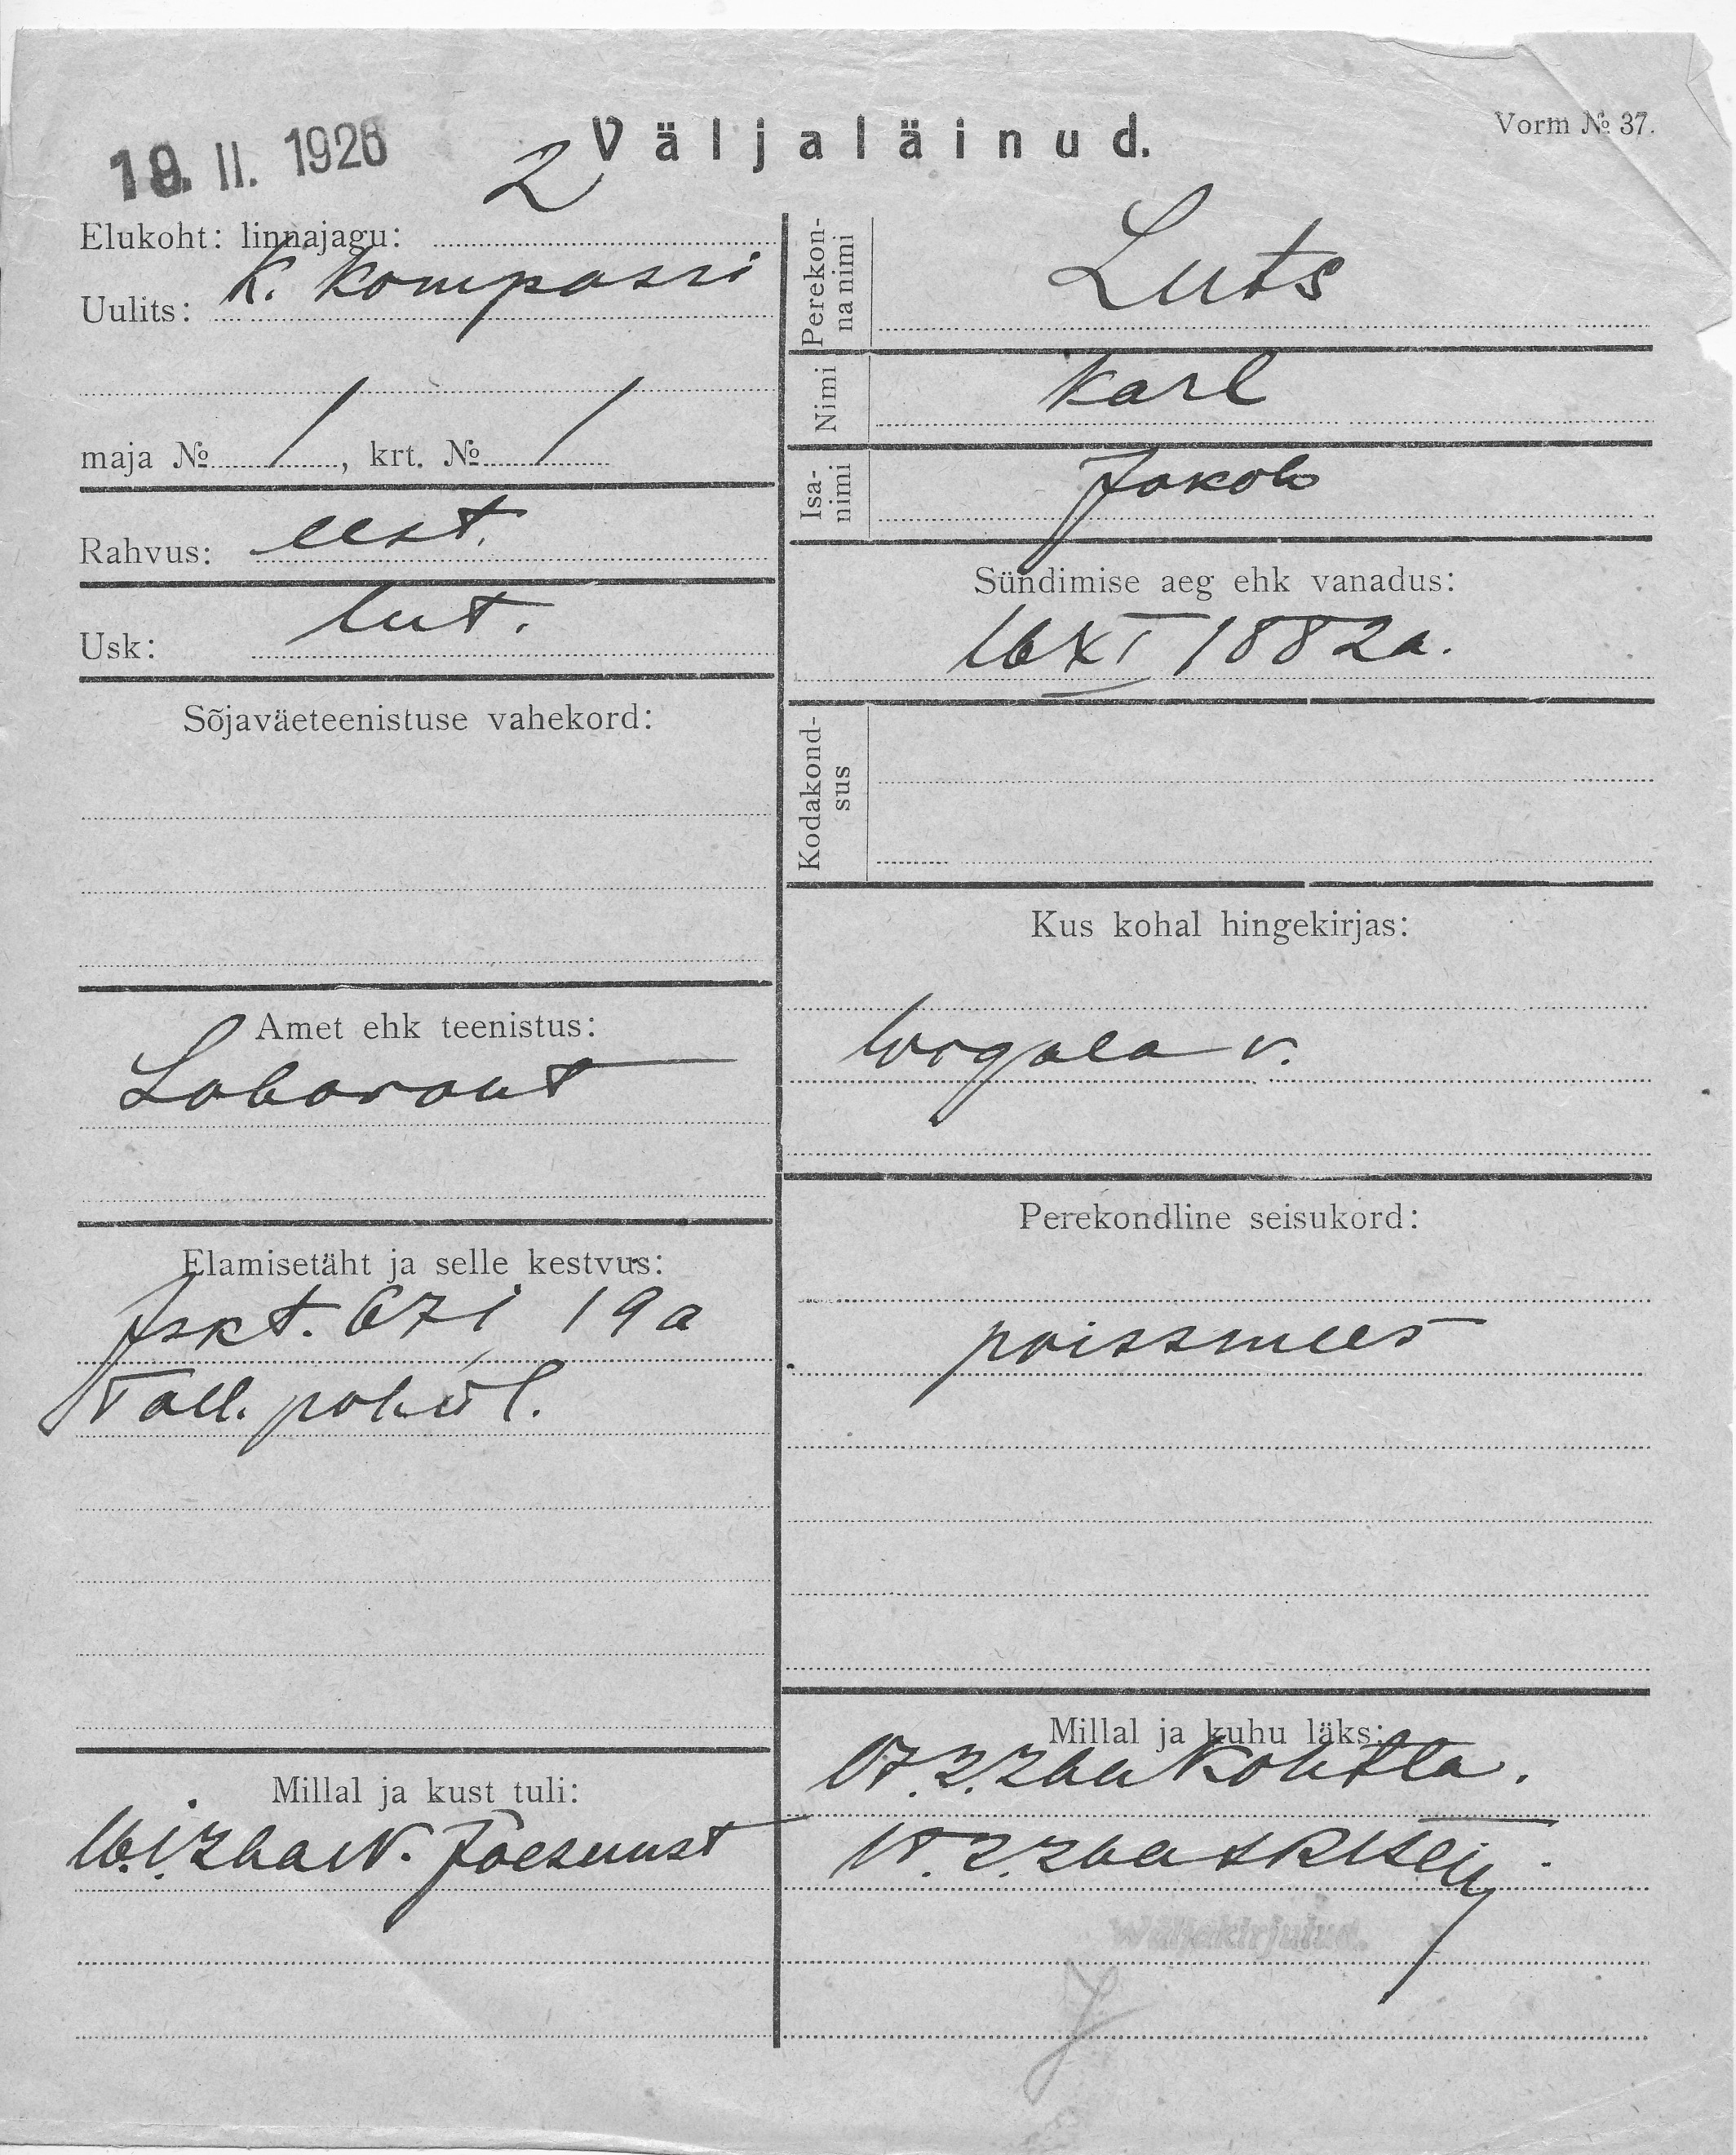 Vorm № 37.
19. II. 1926
2 Väljaläinud.
Elukoht: linnajagu:
Uulits: K. Kompassi
maja № 1, krt. № 1
Rahvus: eest.
Usk: lut.
Sõjaväeteenistuse vahekord:
Amet ehk teenistus:
Laborant
Elamisetäht ja selle kestvus:
Iskt. 671 19a
Tall. pol.ül.
Millal ja kust tuli:
16.1.26a N. Jõesuust
Perekon-
na nimi
Luts
Nimi Karl
Isa-
nimi
Jakob
Sündimise aeg ehk vanadus:
16 XI 1882a.
Kodakond-
sus
Kus kohal hingekirjas:
Wigala v.
Perekondline seisukord:
poissmees
Millal ja kuhu läks:
17.2.26a Kohtla.
18.2.26a
Wäljakirjutud.